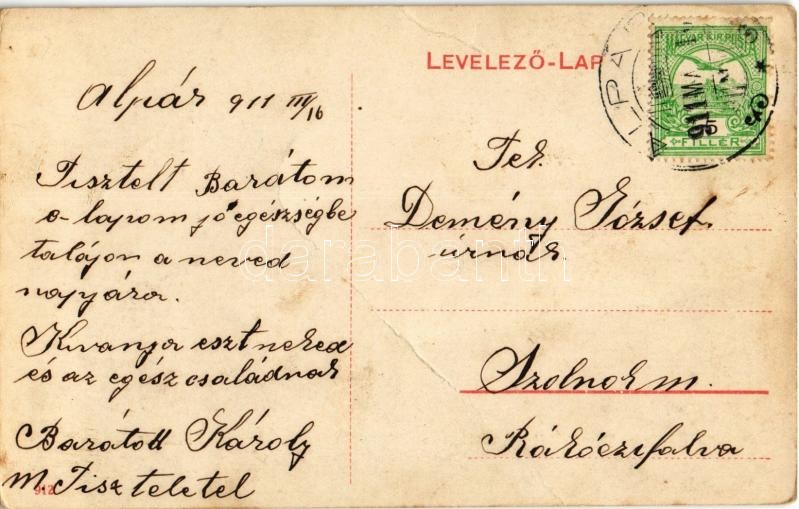 LEVELEZŐ-LAP
MAGYAR KIR. POSTA
5
FILLÉR
Alpár 911 III/16
Tisztelt Barátom
e-lapom jó egészségbe
talájon a neved
napjára.
Kivanja eszt neked
és az egész családnak
Barátod Károly
M Tiszteletel
912
Tek.
Demény József
úrnak
Szolnok m.
Rákóczifalva
darabanth